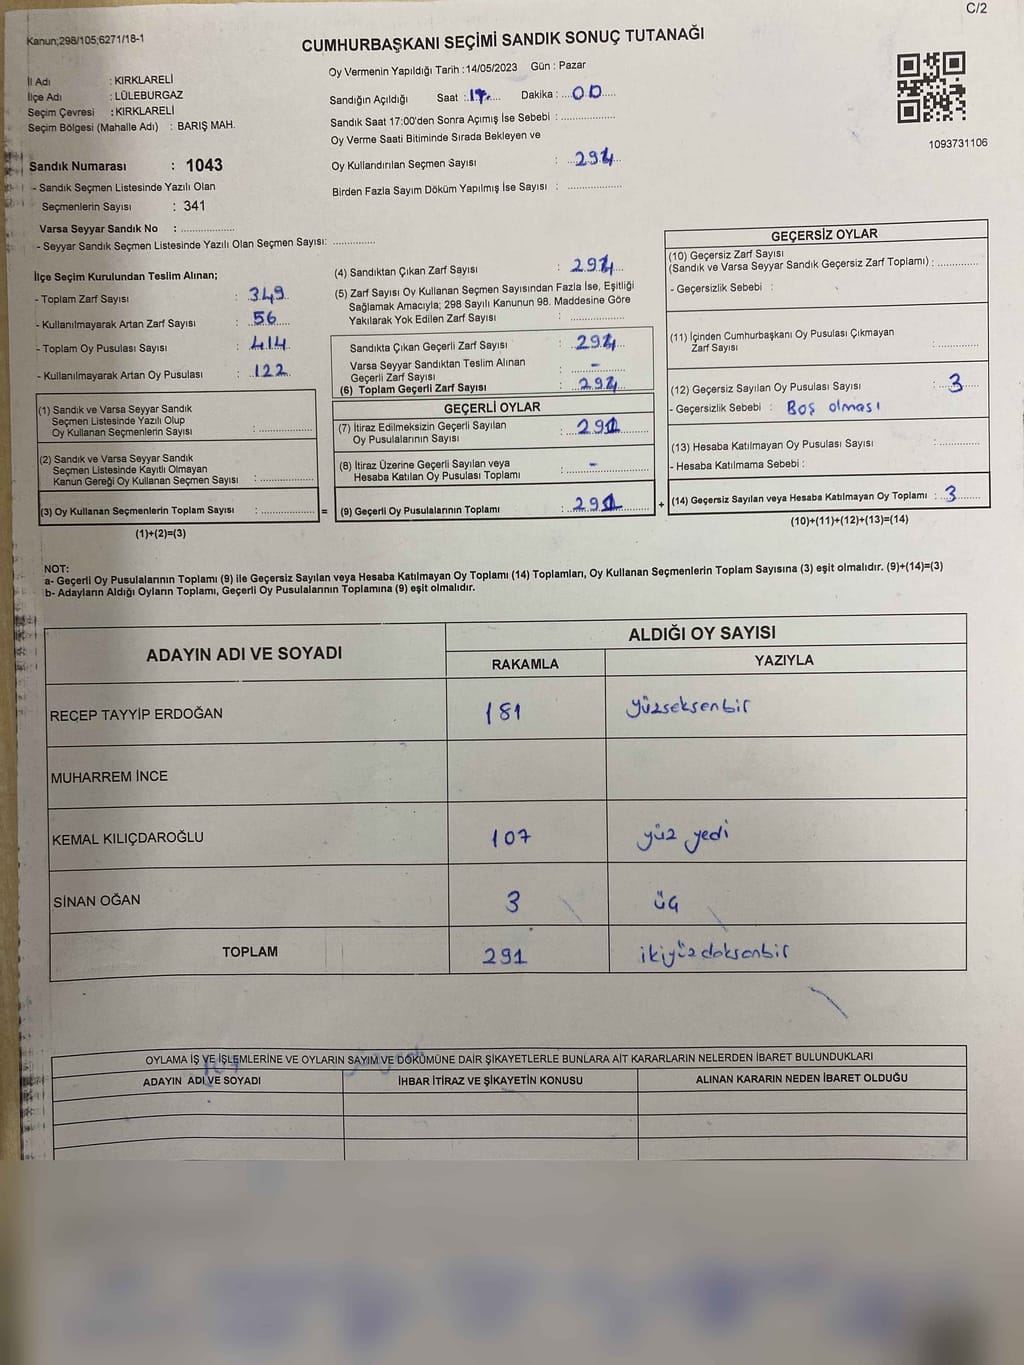 C/2
Kanun;298/105;6271/18-1
CUMHURBAŞKANI SEÇİMİ SANDIK SONUÇ TUTANAĞI
İl Adı : KIRKLARELİ
İlçe Adı : LÜLEBURGAZ
Seçim Çevresi : KIRKLARELİ
Seçim Bölgesi (Mahalle Adı) : BARIŞ MAH.
Sandık Numarası : 1043
- Sandık Seçmen Listesinde Yazılı Olan
Seçmenlerin Sayısı : 341
Varsa Seyyar Sandık No : ....................
- Seyyar Sandık Seçmen Listesinde Yazılı Olan Seçmen Sayısı: ...............
Oy Vermenin Yapıldığı Tarih :14/05/2023 Gün : Pazar
Sandığın Açıldığı Saat : 17 Dakika : 00
Sandık Saat 17:00'den Sonra Açımış İse Sebebi : ....................
Oy Verme Saati Bitiminde Sırada Bekleyen ve
Oy Kullandırılan Seçmen Sayısı : 294
Birden Fazla Sayım Döküm Yapılmış İse Sayısı : ....................
1093731106
İlçe Seçim Kurulundan Teslim Alınan;
- Toplam Zarf Sayısı : 349
- Kullanılmayarak Artan Zarf Sayısı : 56
- Toplam Oy Pusulası Sayısı : 414
- Kullanılmayarak Artan Oy Pusulası : 122
(1) Sandık ve Varsa Seyyar Sandık
Seçmen Listesinde Yazılı Olup
Oy Kullanan Seçmenlerin Sayısı : ....................
(2) Sandık ve Varsa Seyyar Sandık
Seçmen Listesinde Kayıtlı Olmayan
Kanun Gereği Oy Kullanan Seçmen Sayısı : ....................
(3) Oy Kullanan Seçmenlerin Toplam Sayısı : .................... =
(1)+(2)=(3)
(4) Sandıktan Çıkan Zarf Sayısı : 294
(5) Zarf Sayısı Oy Kullanan Seçmen Sayısından Fazla İse, Eşitliği
Sağlamak Amacıyla; 298 Sayılı Kanunun 98. Maddesine Göre
Yakılarak Yok Edilen Zarf Sayısı : ....................
Sandıkta Çıkan Geçerli Zarf Sayısı : 294
Varsa Seyyar Sandıktan Teslim Alınan
Geçerli Zarf Sayısı : -
(6) Toplam Geçerli Zarf Sayısı : 294
GEÇERLİ OYLAR
(7) İtiraz Edilmeksizin Geçerli Sayılan
Oy Pusulalarının Sayısı : 291
(8) İtiraz Üzerine Geçerli Sayılan veya
Hesaba Katılan Oy Pusulası Toplamı : -
(9) Geçerli Oy Pusulalarının Toplamı : 291 +
GEÇERSİZ OYLAR
(10) Geçersiz Zarf Sayısı
(Sandık ve Varsa Seyyar Sandık Geçersiz Zarf Toplamı) : ............
- Geçersizlik Sebebi :
(11) İçinden Cumhurbaşkanı Oy Pusulası Çıkmayan
Zarf Sayısı : ............
(12) Geçersiz Sayılan Oy Pusulası Sayısı : 3
- Geçersizlik Sebebi : Boş olması
(13) Hesaba Katılmayan Oy Pusulası Sayısı : ............
- Hesaba Katılmama Sebebi :
(14) Geçersiz Sayılan veya Hesaba Katılmayan Oy Toplamı : 3
(10)+(11)+(12)+(13)=(14)
NOT:
a- Geçerli Oy Pusulalarının Toplamı (9) ile Geçersiz Sayılan veya Hesaba Katılmayan Oy Toplamı (14) Toplamları, Oy Kullanan Seçmenlerin Toplam Sayısına (3) eşit olmalıdır. (9)+(14)=(3)
b- Adayların Aldığı Oyların Toplamı, Geçerli Oy Pusulalarının Toplamına (9) eşit olmalıdır.
ADAYIN ADI VE SOYADI
ALDIĞI OY SAYISI
RAKAMLA YAZIYLA
RECEP TAYYİP ERDOĞAN 181 yüzseksenbir
MUHARREM İNCE
KEMAL KILIÇDAROĞLU 107 yüz yedi
SİNAN OĞAN 3 üç
TOPLAM 291 ikiyüzdoksanbir
OYLAMA İŞ VE İŞLEMLERİNE VE OYLARIN SAYIM VE DÖKÜMÜNE DAİR ŞİKAYETLERLE BUNLARA AİT KARARLARIN NELERDEN İBARET BULUNDUKLARI
ADAYIN ADI VE SOYADI İHBAR İTİRAZ VE ŞİKAYETİN KONUSU ALINAN KARARIN NEDEN İBARET OLDUĞU